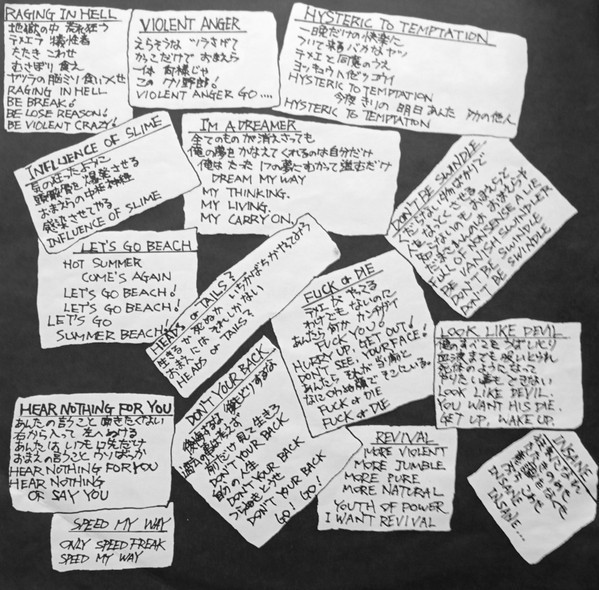 RAGING IN HELL
地獄の中 荒れ狂う
テメエラ 犠牲者
たたき こわせ
むさぼり食え
ヤツラの脳ミソ食いつくせ
RAGING IN HELL
BE BREAK!
BE LOSE REASON!
BE VIOLENT CRAZY!
VIOLENT ANGER
えらそうな ツラさげて
かっこだけで おまえら
一体 何様じゃ
このクソ野郎!
VIOLENT ANGER GO....
HYSTERIC TO TEMPTATION
一晩だけの快楽に
ついて来るバカなヤツ
テメエと同意のうえ
HYSTERIC TO TEMPTATION
今夜きりの 明日あんた アカの他人
HYSTERIC TO TEMPTATION
INFLUENCE OF SLIME
気の狂ったように
頭脳を爆発させる
おまえらの中枢神経
感染させてやる
INFLUENCE OF SLIME
I'M A DREAMER
全てのものが消えさっても
俺の夢をかなえてくれるのは自分だけ
俺は たった1つの夢にむかって進むだけ
DREAM MY WAY
MY THINKING.
MY LIVING.
MY CARRY ON.
DON'T BE SWINDLE
FULL OF NONSENSE A LIE
DIE VANISH SWINDLER
DON'T BE SWINDLE
DON'T BE SWINDLE
LET'S GO BEACH
HOT SUMMER
COME'S AGAIN
LET'S GO BEACH!
LET'S GO BEACH!
LET'S GO
SUMMER BEACH!
HEADS or TAILS?
生きるか死ぬか いちかばちかやってみろ
HEADS or TAILS?
FUCK or DIE
わけでも ないのに
あんた 何か カンチガイ
FUCK YOU!
HURRY UP, GET OUT!
DON'T SEE, YOUR FACE!
FUCK or DIE
FUCK or DIE
LOOK LIKE DEVIL
俺のすべてをうばいとり
血液までも吸いとられ
死体のようになって
やりたい事もできない
LOOK LIKE DEVIL.
YOU WANT HIS DIE.
GET UP, WAKE UP.
HEAR NOTHING FOR YOU
あんたの言うこと聞きたくない
右から入って左へぬける
あんたはいつも口先だけ
おまえの言うこと ウソばっか
HEAR NOTHING FOR YOU
HEAR NOTHING
OF SAY YOU
DON'T YOUR BACK
前だけ見て生きろ
DON'T YOUR BACK
自分の人生
DON'T YOUR BACK
DON'T YOUR BACK
GO! GO!
REVIVAL
MORE VIOLENT
MORE JUMBLE
MORE PURE
MORE NATURAL
YOUTH OF POWER
I WANT REVIVAL
INSANE
INSANE...
INSANE...
SPEED MY WAY
ONLY SPEED FREAK
SPEED MY WAY